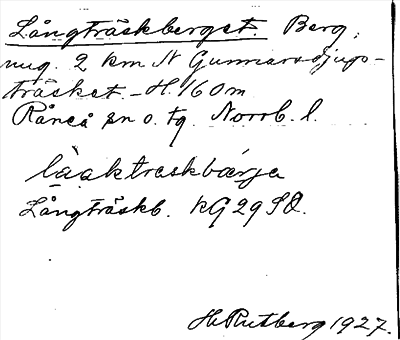 Långträskberget. Berg,
nug. 2 km N Gunnarsdjups-
träsket. - H. 160 m
Råneå sn o. tg. Norrb. l.
låaktraskbárja
Långträskb. KG 29 SO.
H. Rutberg 1927.